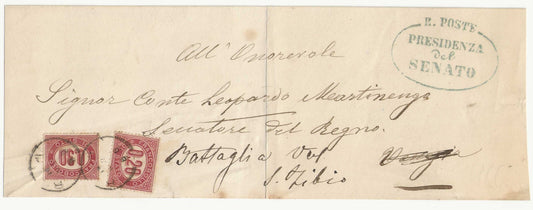 R. POSTE
PRESIDENZA
del
SENATO
All' Onorevole
Signor Conte Leopardo Martinengo
Senatore del Regno.
Battaglia Val
S. Zibio
0,30
0,20